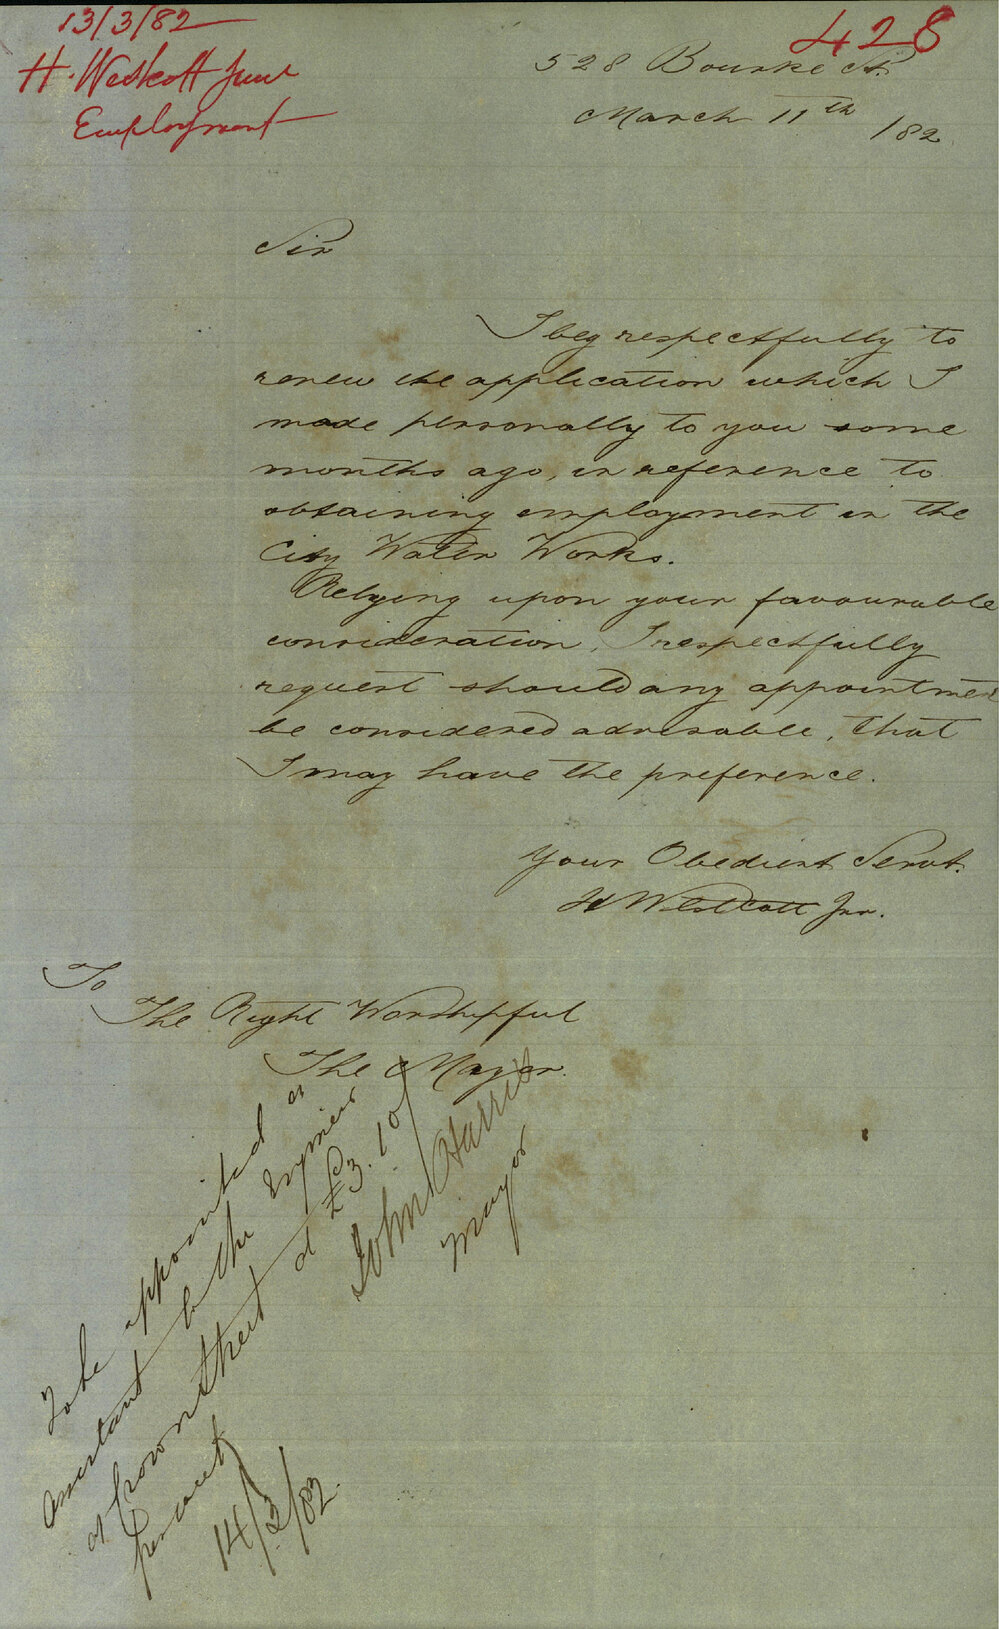 13/3/82
428
H. Westcott Junr
Employment
528 Bourke St.
March 11th /82
Sir
I beg respectfully to
renew the application which I
made personally to you some
months ago, in reference to
obtaining employment in the
City Water Works.
Relying upon your favourable
consideration, I respectfully
request should any appointmen
be considered advisable, that
I may have the preference.
Your Obedient Servt.
H Westcott Jnr.
To
The Right Worshipful
The Mayor.
To be appointed as
assistant to the Engineer
at Crown Street at £3.10/
per week
John Harris
Mayor
14/3/82